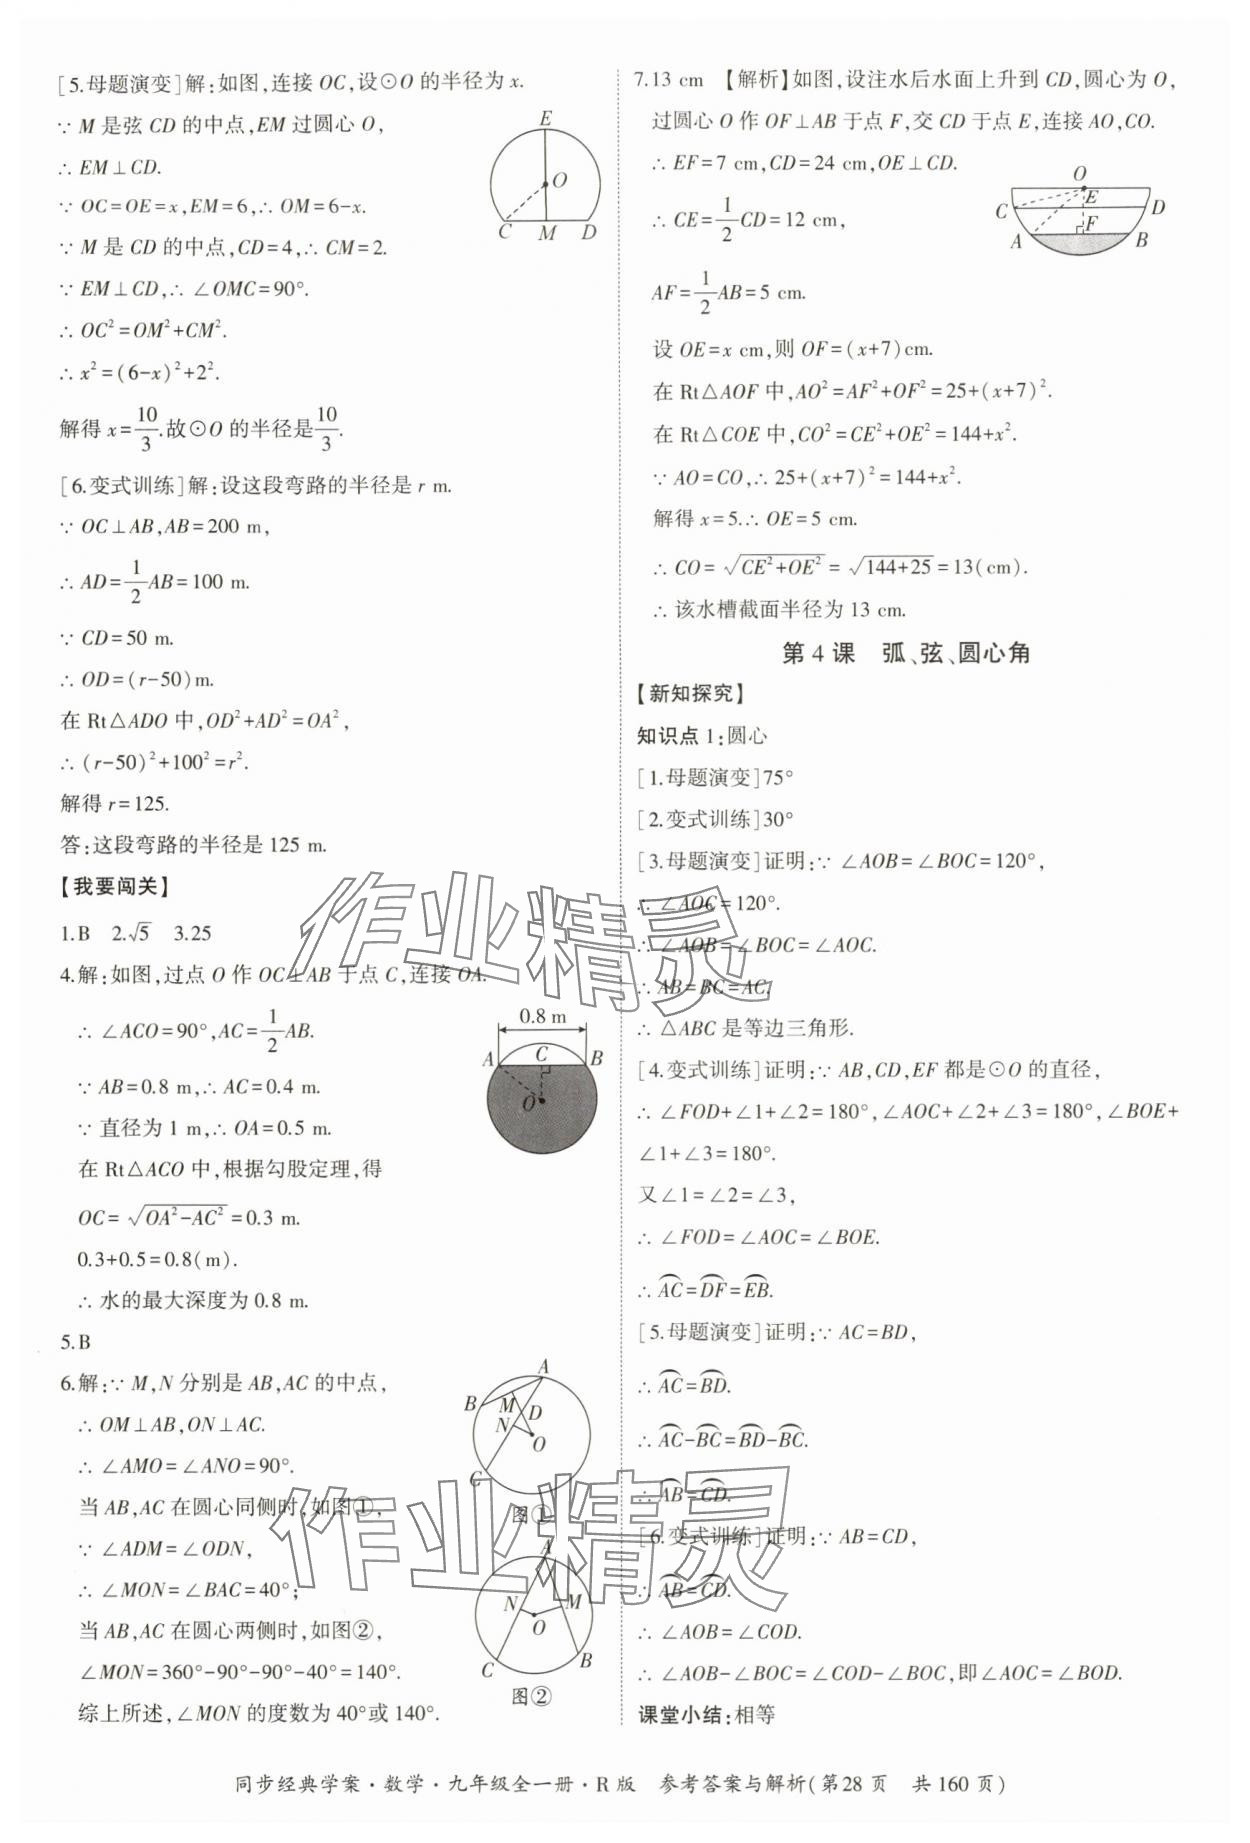 [5.母题演变]解:如图,连接 OC,设⊙O 的半径为 x.
∵ M 是弦 CD 的中点,EM 过圆心 O,
∴ EM⊥CD.
∵ OC=OE=x,EM=6,∴ OM=6-x.
∵ M 是 CD 的中点,CD=4,∴ CM=2.
∵ EM⊥CD,∴ ∠OMC=90°.
∴ OC²=OM²+CM².
∴ x²=(6-x)²+2².
解得 x=10/3.故⊙O 的半径是10/3.
E
O
C M D
[6.变式训练]解:设这段弯路的半径是 r m.
∵ OC⊥AB,AB=200 m,
∴ AD=1/2AB=100 m.
∵ CD=50 m.
∴ OD=(r-50)m.
在 Rt△ADO 中,OD²+AD²=OA²,
∴ (r-50)²+100²=r².
解得 r=125.
答:这段弯路的半径是 125 m.
【我要闯关】
1.B 2.√5 3.25
4.解:如图,过点 O 作 OC⊥AB 于点 C,连接 OA.
∴ ∠ACO=90°,AC=1/2AB.
∵ AB=0.8 m,∴ AC=0.4 m.
∵ 直径为 1 m,∴ OA=0.5 m.
在 Rt△ACO 中,根据勾股定理,得
OC=√(OA²-AC²)=0.3 m.
0.3+0.5=0.8(m).
∴ 水的最大深度为 0.8 m.
0.8 m
A C B
O
5.B
6.解:∵ M,N 分别是 AB,AC 的中点,
∴ OM⊥AB,ON⊥AC.
∴ ∠AMO=∠ANO=90°.
当 AB,AC 在圆心同侧时,如图①,
∵ ∠ADM=∠ODN,
∴ ∠MON=∠BAC=40°;
当 AB,AC 在圆心两侧时,如图②,
∠MON=360°-90°-90°-40°=140°.
综上所述,∠MON 的度数为 40°或 140°.
A
B M D
N O
C
图①
A
N M
O
C B
图②
7.13 cm 【解析】如图,设注水后水面上升到 CD,圆心为 O,
过圆心 O 作 OF⊥AB 于点 F,交 CD 于点 E,连接 AO,CO.
∴ EF=7 cm,CD=24 cm,OE⊥CD.
∴ CE=1/2CD=12 cm,
AF=1/2AB=5 cm.
O
C E D
A F B
设 OE=x cm,则 OF=(x+7)cm.
在 Rt△AOF 中,AO²=AF²+OF²=25+(x+7)².
在 Rt△COE 中,CO²=CE²+OE²=144+x².
∵ AO=CO,∴ 25+(x+7)²=144+x².
解得 x=5.∴ OE=5 cm.
∴ CO=√(CE²+OE²)=√(144+25)=13(cm).
∴ 该水槽截面半径为 13 cm.
第 4 课 弧、弦、圆心角
【新知探究】
知识点 1:圆心
[1.母题演变]75°
[2.变式训练]30°
[3.母题演变]证明:∵ ∠AOB=∠BOC=120°,
∴ ∠AOC=120°.
∴ ∠AOB=∠BOC=∠AOC.
∴ AB=BC=AC.
∴ △ABC 是等边三角形.
[4.变式训练]证明:∵ AB,CD,EF 都是⊙O 的直径,
∴ ∠FOD+∠1+∠2=180°,∠AOC+∠2+∠3=180°,∠BOE+
∠1+∠3=180°.
又∠1=∠2=∠3,
∴ ∠FOD=∠AOC=∠BOE.
∴ ⌒AC=⌒DF=⌒EB.
[5.母题演变]证明:∵ AC=BD,
∴ ⌒AC=⌒BD.
∴ ⌒AC-⌒BC=⌒BD-⌒BC.
∴ ⌒AB=⌒CD.
[6.变式训练]证明:∵ AB=CD,
∴ ⌒AB=⌒CD.
∴ ∠AOB=∠COD.
∴ ∠AOB-∠BOC=∠COD-∠BOC,即∠AOC=∠BOD.
课堂小结:相等
作业精灵
作业精灵
同步经典学案·数学·九年级全一册·R 版 参考答案与解析(第28 页 共 160 页)